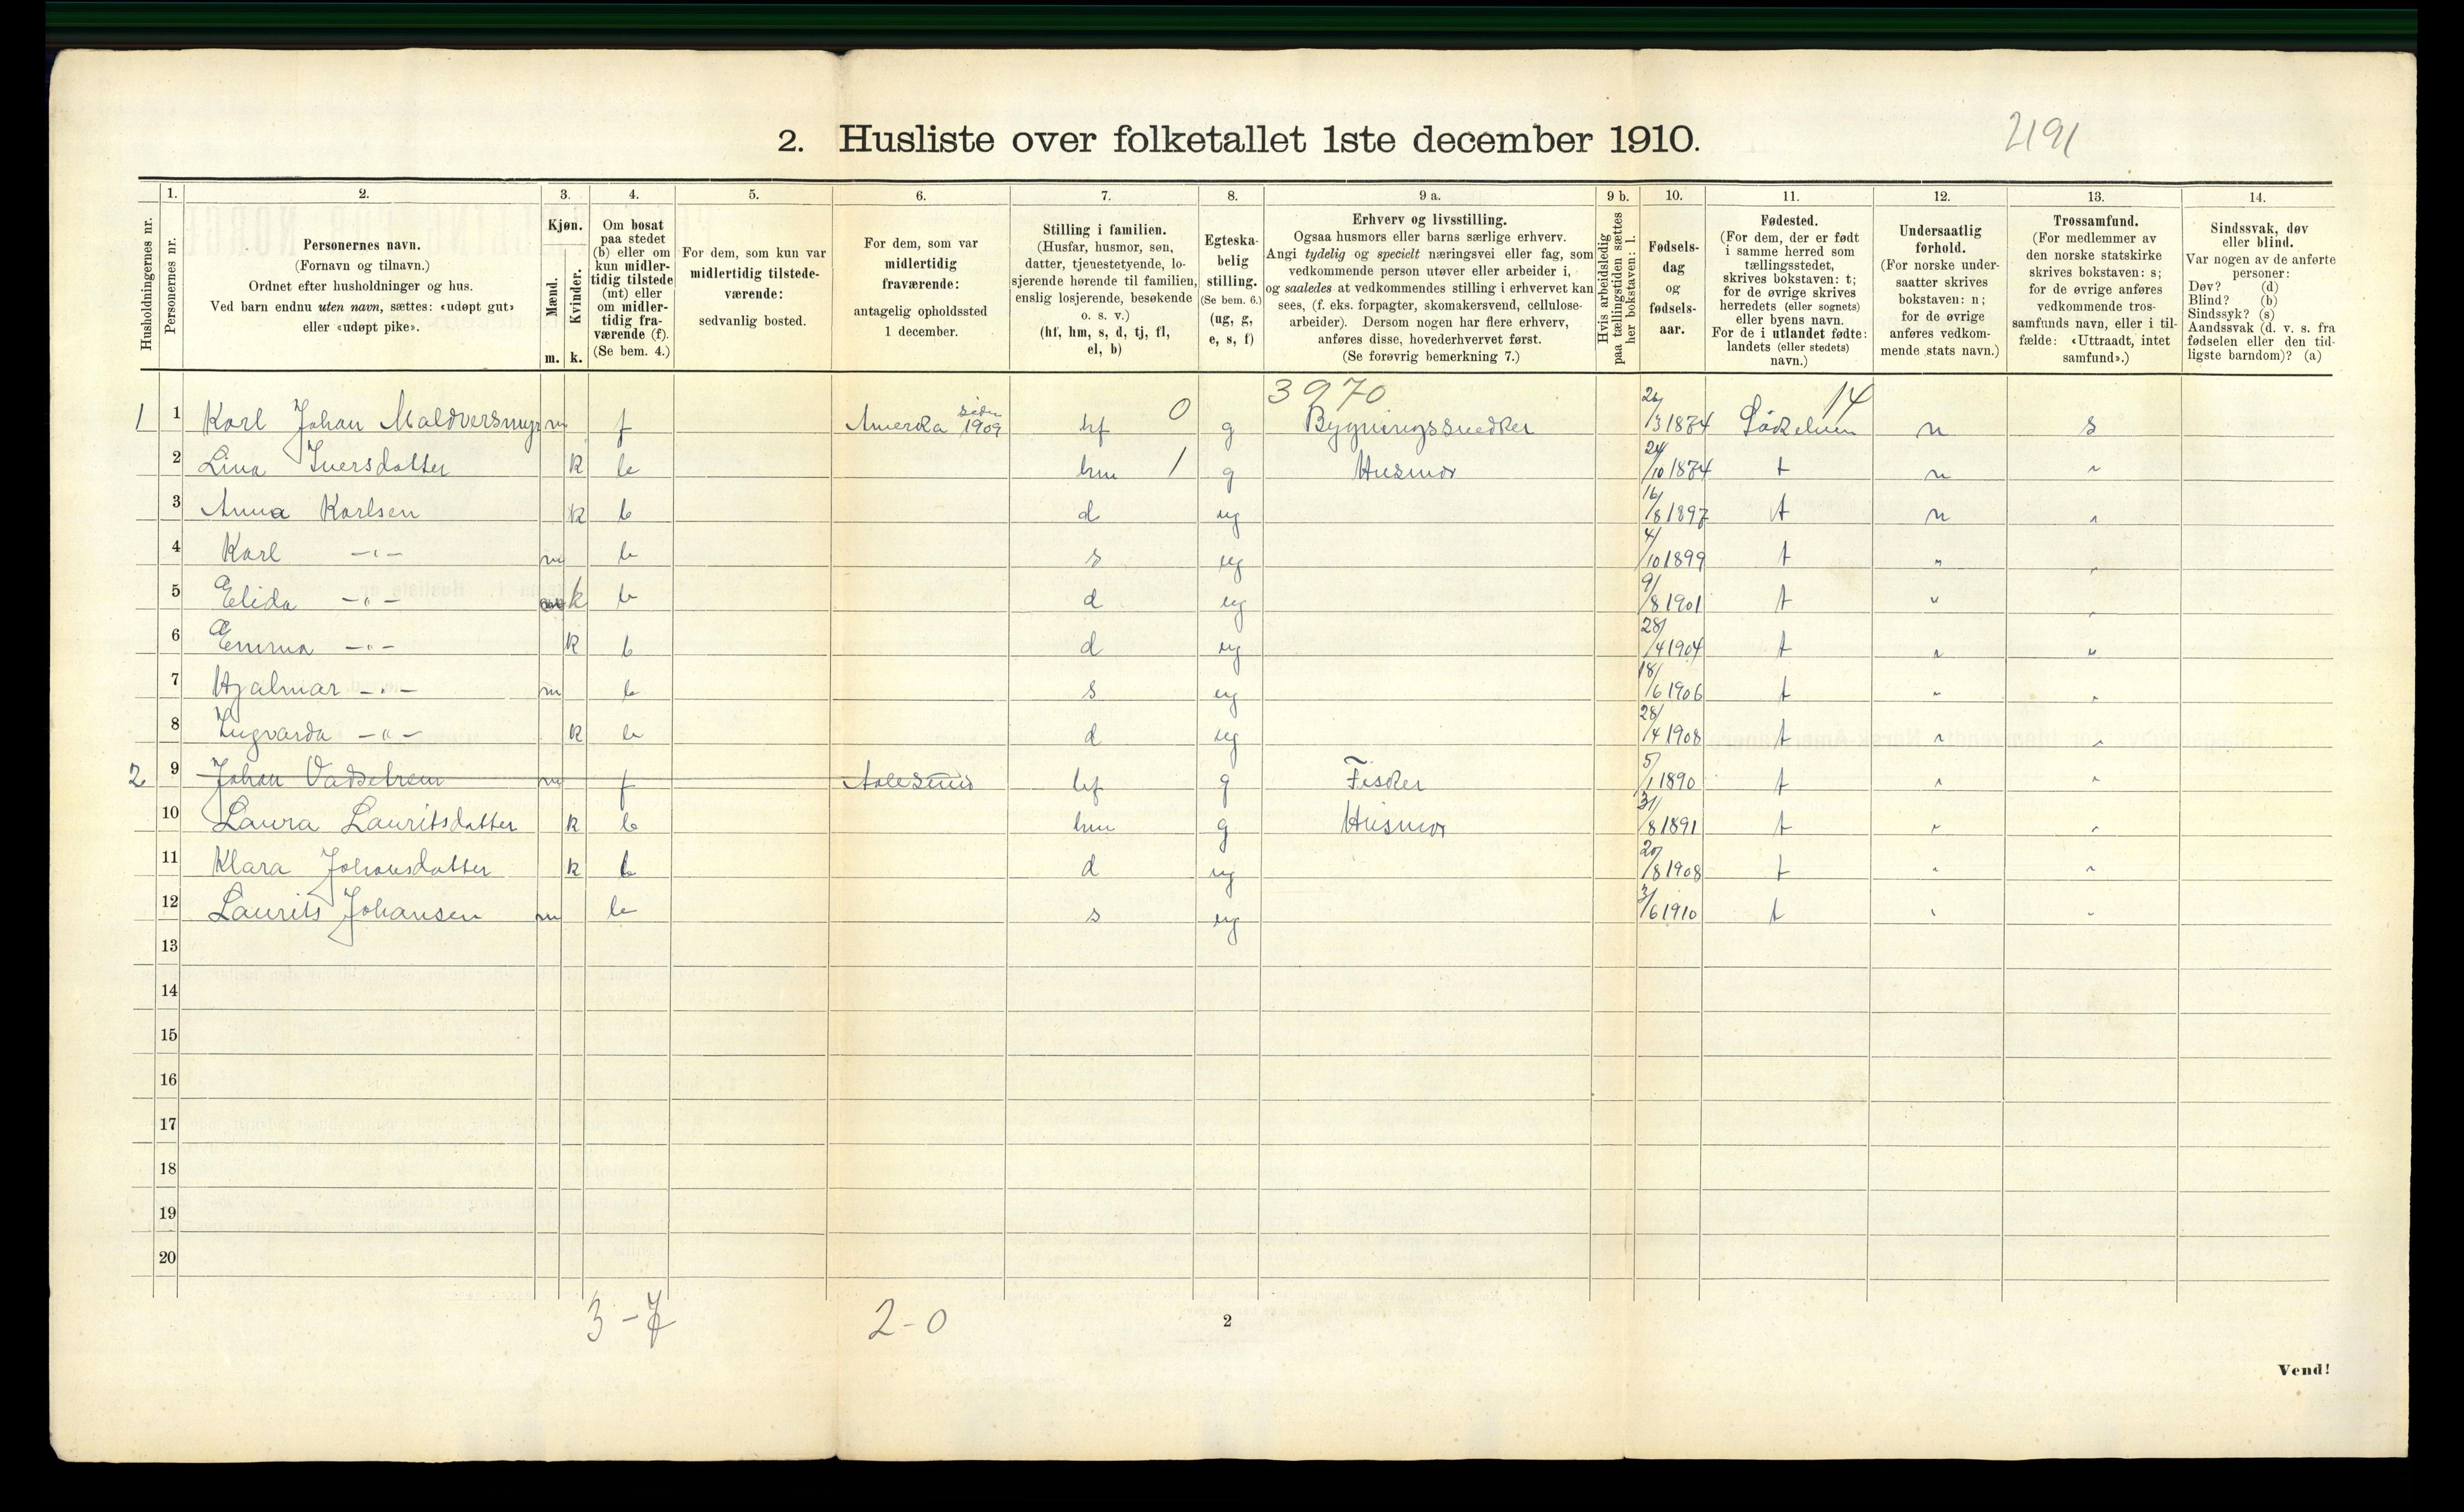 2. Husliste over folketallet 1ste december 1910. 2191
1. 2. 3. 4. 5. 6. 7. 8. 9 a. 9 b. 10. 11. 12. 13. 14.
Husholdningernes nr.
Personernes nr.
Personernes navn.
(Fornavn og tilnavn.)
Ordnet efter husholdninger og hus.
Ved barn endnu uten navn, sættes: «udøpt gut»
eller «udøpt pike».
Kjøn.
Mænd.
Kvinder.
m. k.
Om bosat
paa stedet
(b) eller om
kun midler-
tidig tilstede
(mt) eller
om midler-
tidig fra-
værende (f).
(Se bem. 4.)
For dem, som kun var
midlertidig tilstede-
værende:
sedvanlig bosted.
For dem, som var
midlertidig
fraværende:
antagelig opholdssted
1 december.
Stilling i familien.
(Husfar, husmor, søn,
datter, tjenestetyende, lo-
sjerende hørende til familien,
enslig losjerende, besøkende
o. s. v.)
(hf, hm, s, d, tj, fl,
el, b)
Egteska-
belig
stilling.
(Se bem. 6.)
(ug, g,
e, s, f)
Erhverv og livsstilling.
Ogsaa husmors eller barns særlige erhverv.
Angi tydelig og specielt næringsvei eller fag, som
vedkommende person utøver eller arbeider i,
og saaledes at vedkommendes stilling i erhvervet kan
sees, (f. eks. forpagter, skomakersvend, cellulose-
arbeider). Dersom nogen har flere erhverv,
anføres disse, hovederhvervet først.
(Se forøvrig bemerkning 7.)
Hvis arbeidsledig
paa tællingstiden sættes
her bokstaven: l.
Fødsels-
dag
og
fødsels-
aar.
Fødested.
(For dem, der er født
i samme herred som
tællingsstedet,
skrives bokstaven: t;
for de øvrige skrives
herredets (eller sognets)
eller byens navn.
For de i utlandet fødte:
landets (eller stedets)
navn.)
Undersaatlig
forhold.
(For norske under-
saatter skrives
bokstaven: n;
for de øvrige
anføres vedkom-
mende stats navn.)
Trossamfund.
(For medlemmer av
den norske statskirke
skrives bokstaven: s;
for de øvrige anføres
vedkommende tros-
samfunds navn, eller i til-
fælde: «Uttraadt, intet
samfund».)
Sindssvak, døv
eller blind.
Var nogen av de anførte
personer:
Døv? (d)
Blind? (b)
Sindssyk? (s)
Aandssvak (d. v. s. fra
fødselen eller den tid-
ligste barndom)? (a)
3970 14
1 1 Karl Johan Maldversmyr m f Amerika siden 1909 hf 0 g Bygningssnedker /3 1874 n s
2 Lina Iversdatter k b hm 1 g Husmor 24/10 1874 t n "
3 Anna Karlsen k b d ug 16/8 1897 t n "
4 Karl -"- m b s ug 4/10 1899 t " "
5 Elida -"- k b d ug 9/8 1901 t " "
6 Emma -"- k b d ug 28/4 1904 t " "
7 Hjalmar -"- m b s ug 18/6 1906 t " "
8 Ingvarda -"- k b d ug 28/4 1908 t " "
2 9 Johan m f Aalesund hf g Fisker 5/1 1890 t " "
10 Laura Lauritsdatter k b hm g Husmor 31/8 1891 t " "
11 Klara Johansdatter k b d ug 20/8 1908 t " "
12 Laurits Johansen m b s ug 3/6 1910 t " "
13
14
15
16
17
18
19
20
3-7 2-0 2
Vend!